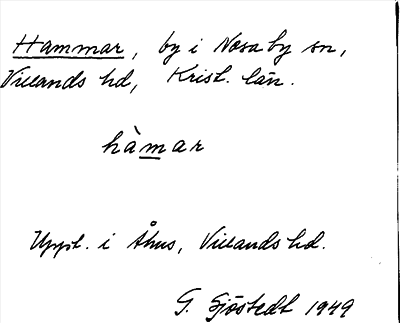 Hammar, by i Nosaby sn,
Villands hd, Krist. län.
hàmar
Uppt. i Åhus, Villands hd.
G. Sjöstedt 1949